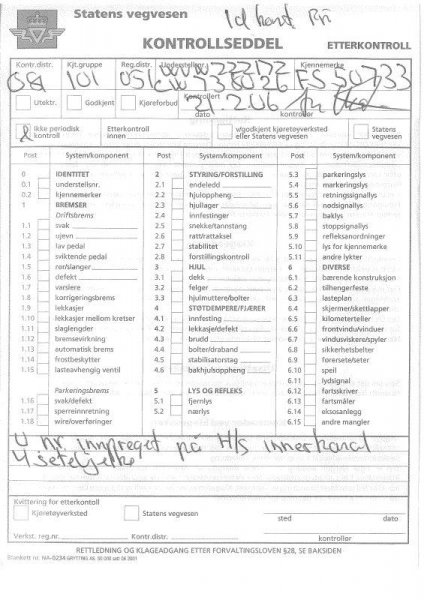 Statens vegvesen
KONTROLLSEDDEL ETTERKONTROLL
Kontr.distr. Kjt.gruppe Reg.distr. Understellsnr. Kjennemerke
101 051
Utektr. Godkjent Kjøreforbud Kontrollert
dato kontrollør
Ikke periodisk kontroll Etterkontroll innen v/godkjent kjøretøyverksted eller Statens vegvesen Statens vegvesen
Post System/komponent Post System/komponent Post System/komponent
0 IDENTITET
0.1 understellsnr.
0.2 kjennemerker
1 BREMSER
Driftsbrems
1.1 svak
1.2 ujevn
1.3 lav pedal
1.4 sviktende pedal
1.5 rør/slanger
1.6 defekt
1.7 varslere
1.8 korrigeringsbrems
1.9 lekkasjer
1.10 lekkasjer mellom kretser
1.11 slaglengder
1.12 bremsevirkning
1.13 automatisk brems
1.14 frostbeskytter
1.15 lasteavhengig ventil
Parkeringsbrems
1.16 svak/defekt
1.17 sperreinnretning
1.18 wire/overføringer
2 STYRING/FORSTILLING
2.1 endeledd
2.2 hjuloppheng
2.3 hjullager
2.4 innfestinger
2.5 snekke/tannstang
2.6 ratt/rattaksel
2.7 stabilitet
2.8 forstillingskontroll
3 HJUL
3.1 dekk
3.2 felger
3.3 hjulmutter/bolter
4 STØTDEMPERE/FJÆRER
4.1 innfesting
4.2 lekkasje/defekt
4.3 brudd
4.4 bolter/draband
4.5 stabilisatorstag
4.6 bakhjulsoppheng
5 LYS OG REFLEKS
5.1 fjernlys
5.2 nærlys
5.3 parkeringslys
5.4 markeringslys
5.5 retningssignallys
5.6 nødsignallys
5.7 baklys
5.8 stoppsignallys
5.9 refleksanordninger
5.10 lys for kjennemerke
5.11 andre lykter
6 DIVERSE
6.1 bærende konstruksjon
6.2 tilhengerfeste
6.3 lasteplan
6.4 skjermer/skettlapper
6.5 kilometerteller
6.6 frontvindu/vinduer
6.7 vindusviskere/spyler
6.8 sikkerhetsbelter
6.9 førersete/seter
6.10 speil
6.11 lydsignal
6.12 fartsskriver
6.13 fartsmåler
6.14 eksosanlegg
6.15 andre mangler
U nr innpreget på H/S innerkanal
Kvittering for etterkontoll
Kjøretøyverksted Statens vegvesen
sted dato
Verkst. reg.nr. Kontr.distr. kontrollør
RETTLEDNING OG KLAGEADGANG ETTER FORVALTINGSLOVEN §28, SE BAKSIDEN
Blankett nr. NA-0234